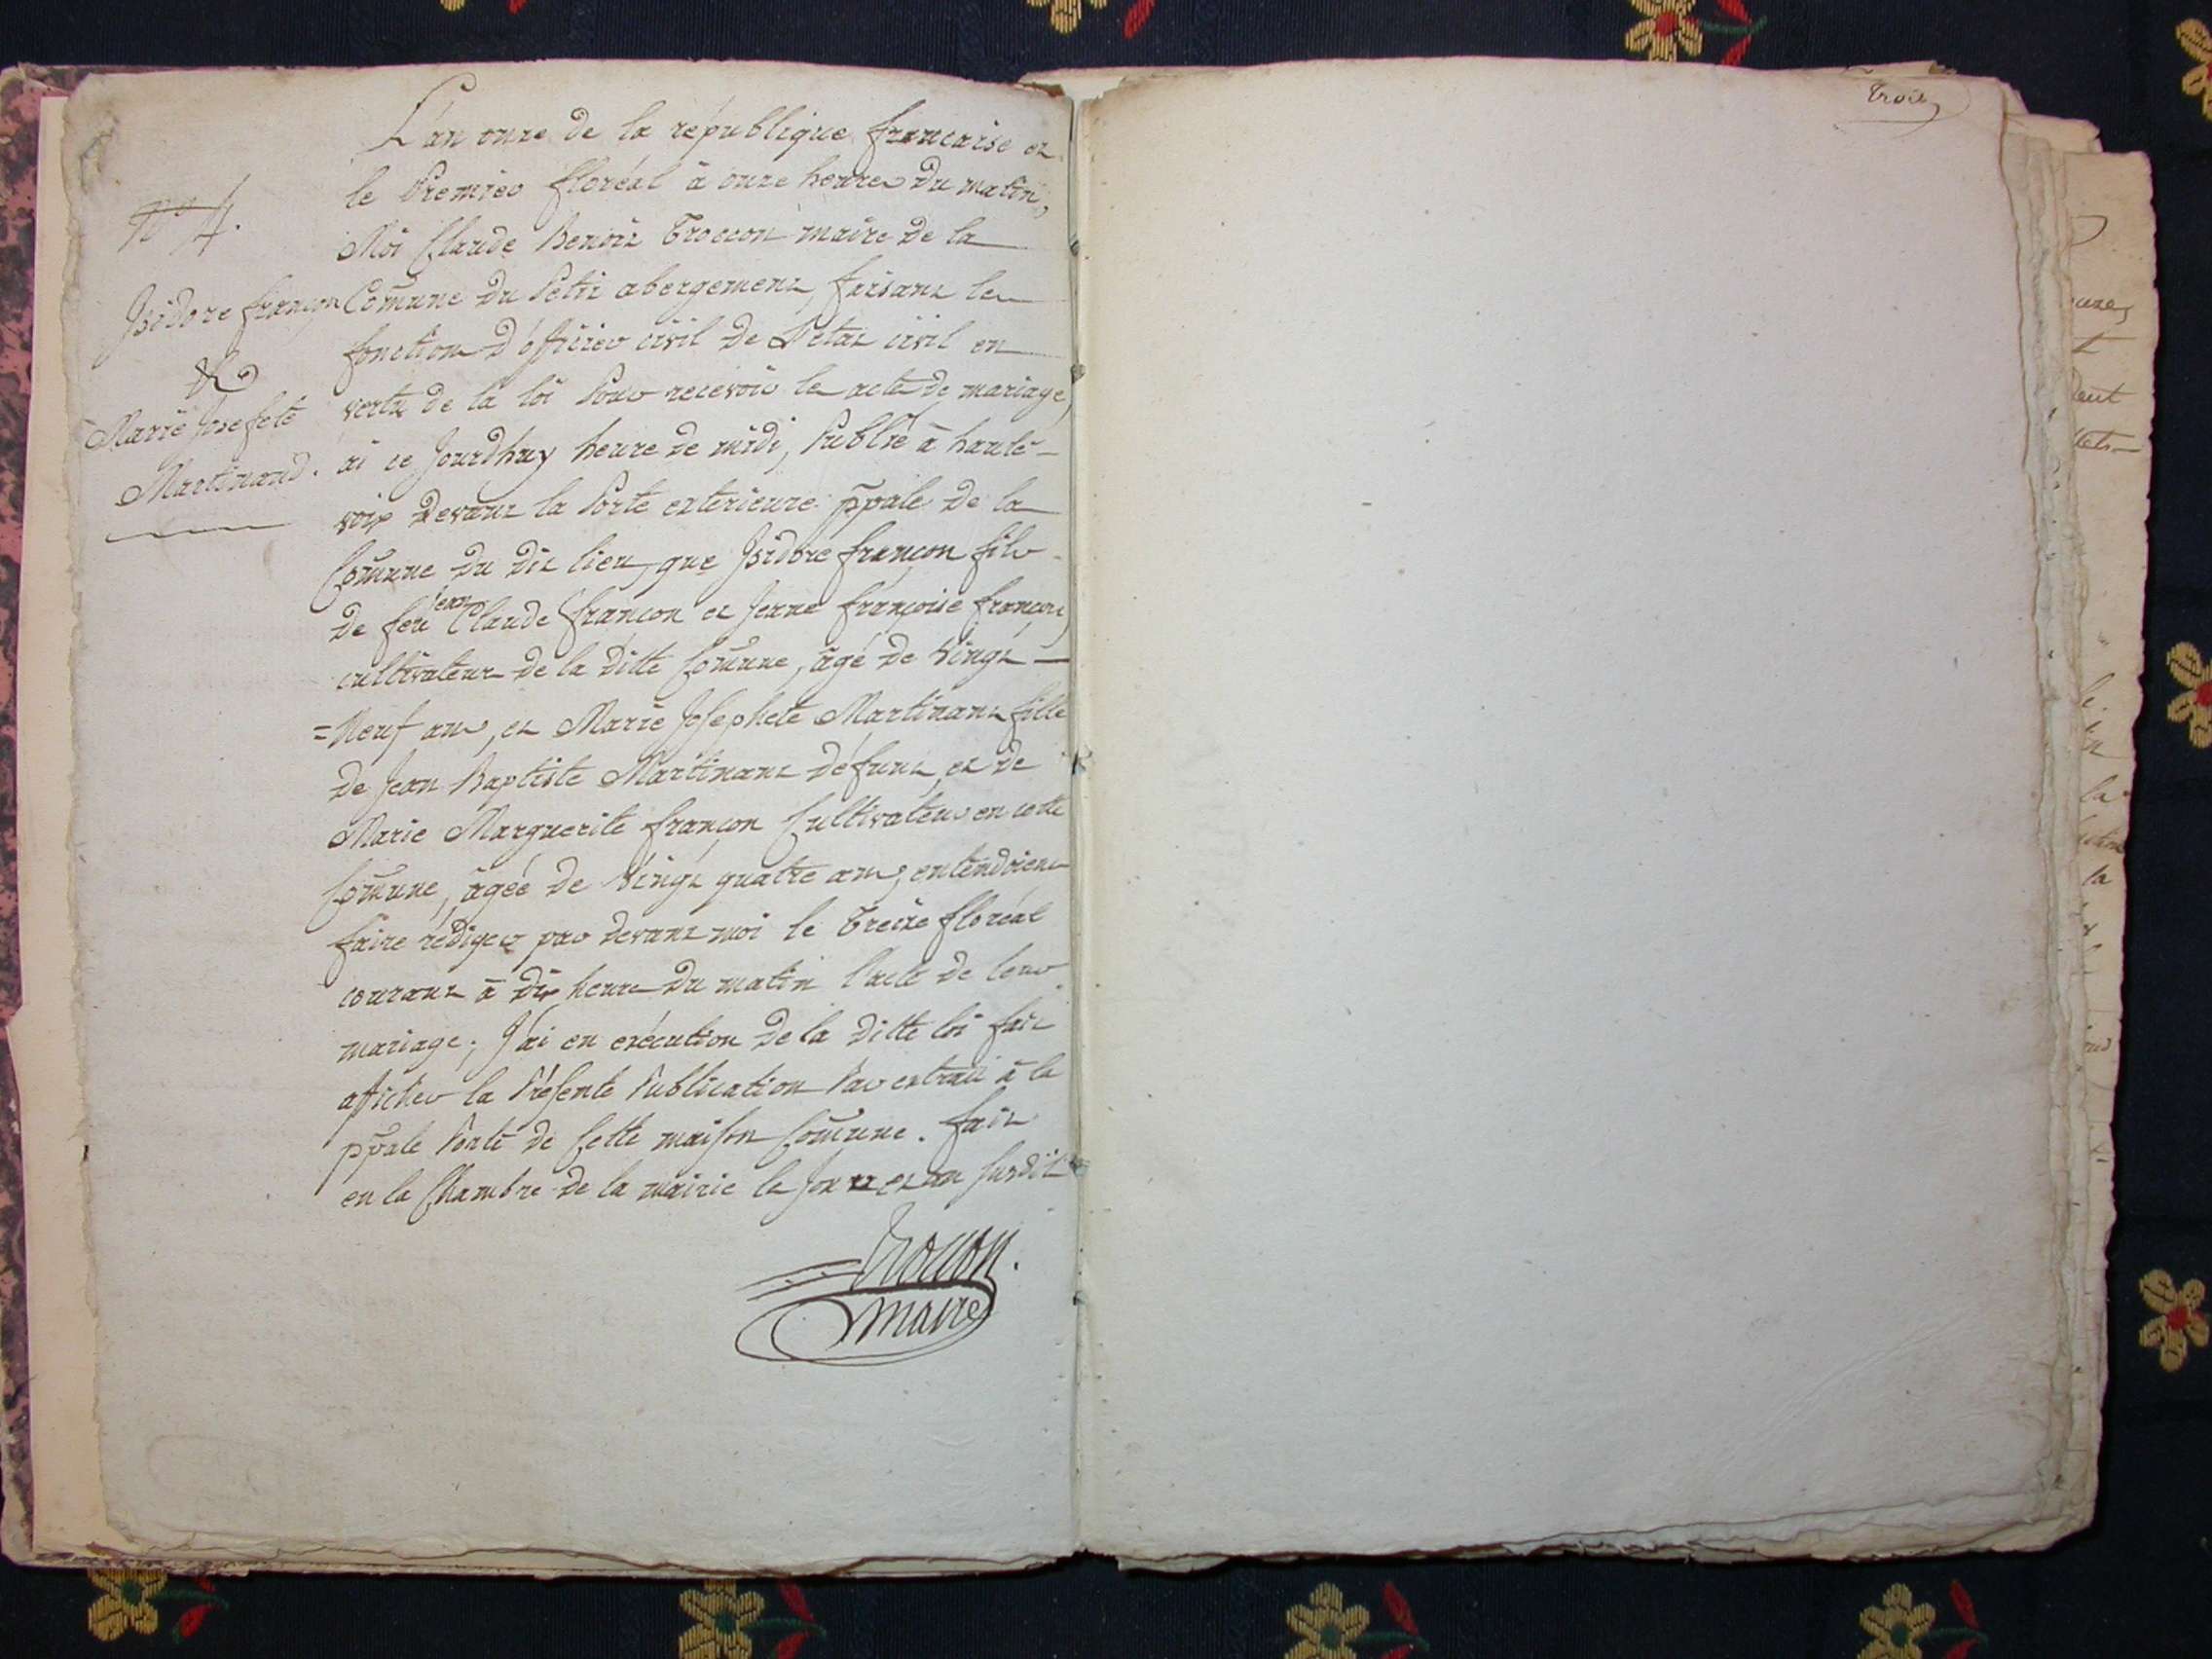 L'an onze de la république francaise et
le Premier floréal à onze heures du matin,
Moi Claude Benoit Troccon maire de la
Com̄une du Petit abergement, faisant les
fonctions d'officier civil de l'état civil en
vertu de la loi Pour recevoir les actes de mariage,
ai ce Jourdhuy heure de midi, Publié à haute
voix devant la Porte exterieure pp̄ale de la
Com̄une du dit lieu, que Isidore françon fils
de feu Jean Claude françon et Jeane françoise françon
cultivateurs de la ditte Com̄une, âgé de Vingt
=Neuf ans, et Marie Josephete Martinant fille
de Jean Baptiste Martinant défunt, et de
Marie Marguerite françon Cultivateurs en cette
Com̄une, âgée de Vingt quatre ans, entendoient
faire rédiger par devant moi le treize floréal
courant à dix heures du matin l'acte de leur
mariage; J'ai en exécution de la ditte loi fait
afficher la Présente Publication Par extrait à la
pp̄ale Porte de Cette maison Com̄une. fait
en la Chambre de la mairie les Jour et an susdit
Troccon.
maire
N° 4.
Isidore françon
&
Marie Josefete
Martinand.
Trois